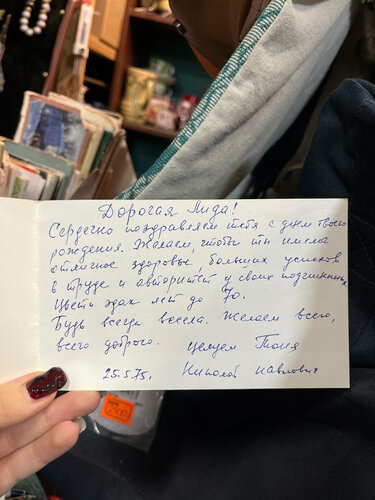 Дорогая Лида!
Сердечно поздравляем тебя с днем твоего
рождения. Желаем, чтобы ты имела
отличное здоровье, больших успехов
в труде и авторитет у своих подчинённых
Цвети эдак лет до 70.
Будь всегда весела. Желаем всего,
всего доброго. Целуем Тоня
25.5.75. Николай Павлович